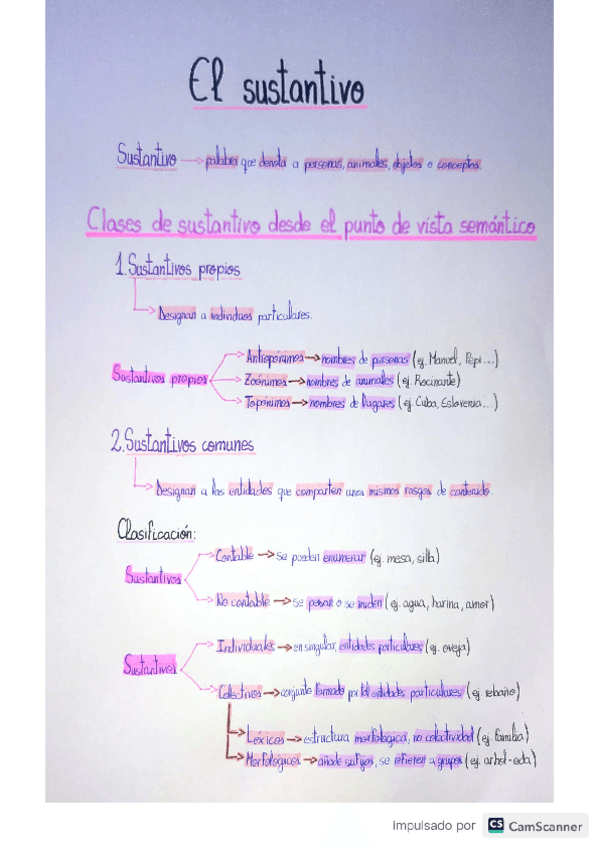 El sustantivo
Sustantivo → palabra que denota a personas, animales, objetos o conceptos.
Clases de sustantivo desde el punto de vista semántico
1. Sustantivos propios
Designan a individuos particulares.
Sustantivos propios
Antropónimos → nombres de personas (ej. Manuel, Pepi...)
Zoónimos → nombres de animales (ej. Rocinante)
Topónimos → nombres de lugares (ej. Cuba, Eslovenia...)
2. Sustantivos comunes
Designan a las entidades que comparten unos mismos rasgos de contenido.
Clasificación:
Sustantivos
Contable → se pueden enumerar (ej. mesa, silla)
No contable → se pesan o se miden (ej. agua, harina, amor)
Sustantivos
Individuales → en singular, entidades particulares (ej. oveja)
Colectivos → conjunto formado por entidades particulares (ej. rebaño)
Léxicos → estructura morfológica, no colectividad (ej. familia)
Morfológicos → añade sufijos, se refieren a grupos (ej. arbol-eda)
Impulsado por CS CamScanner